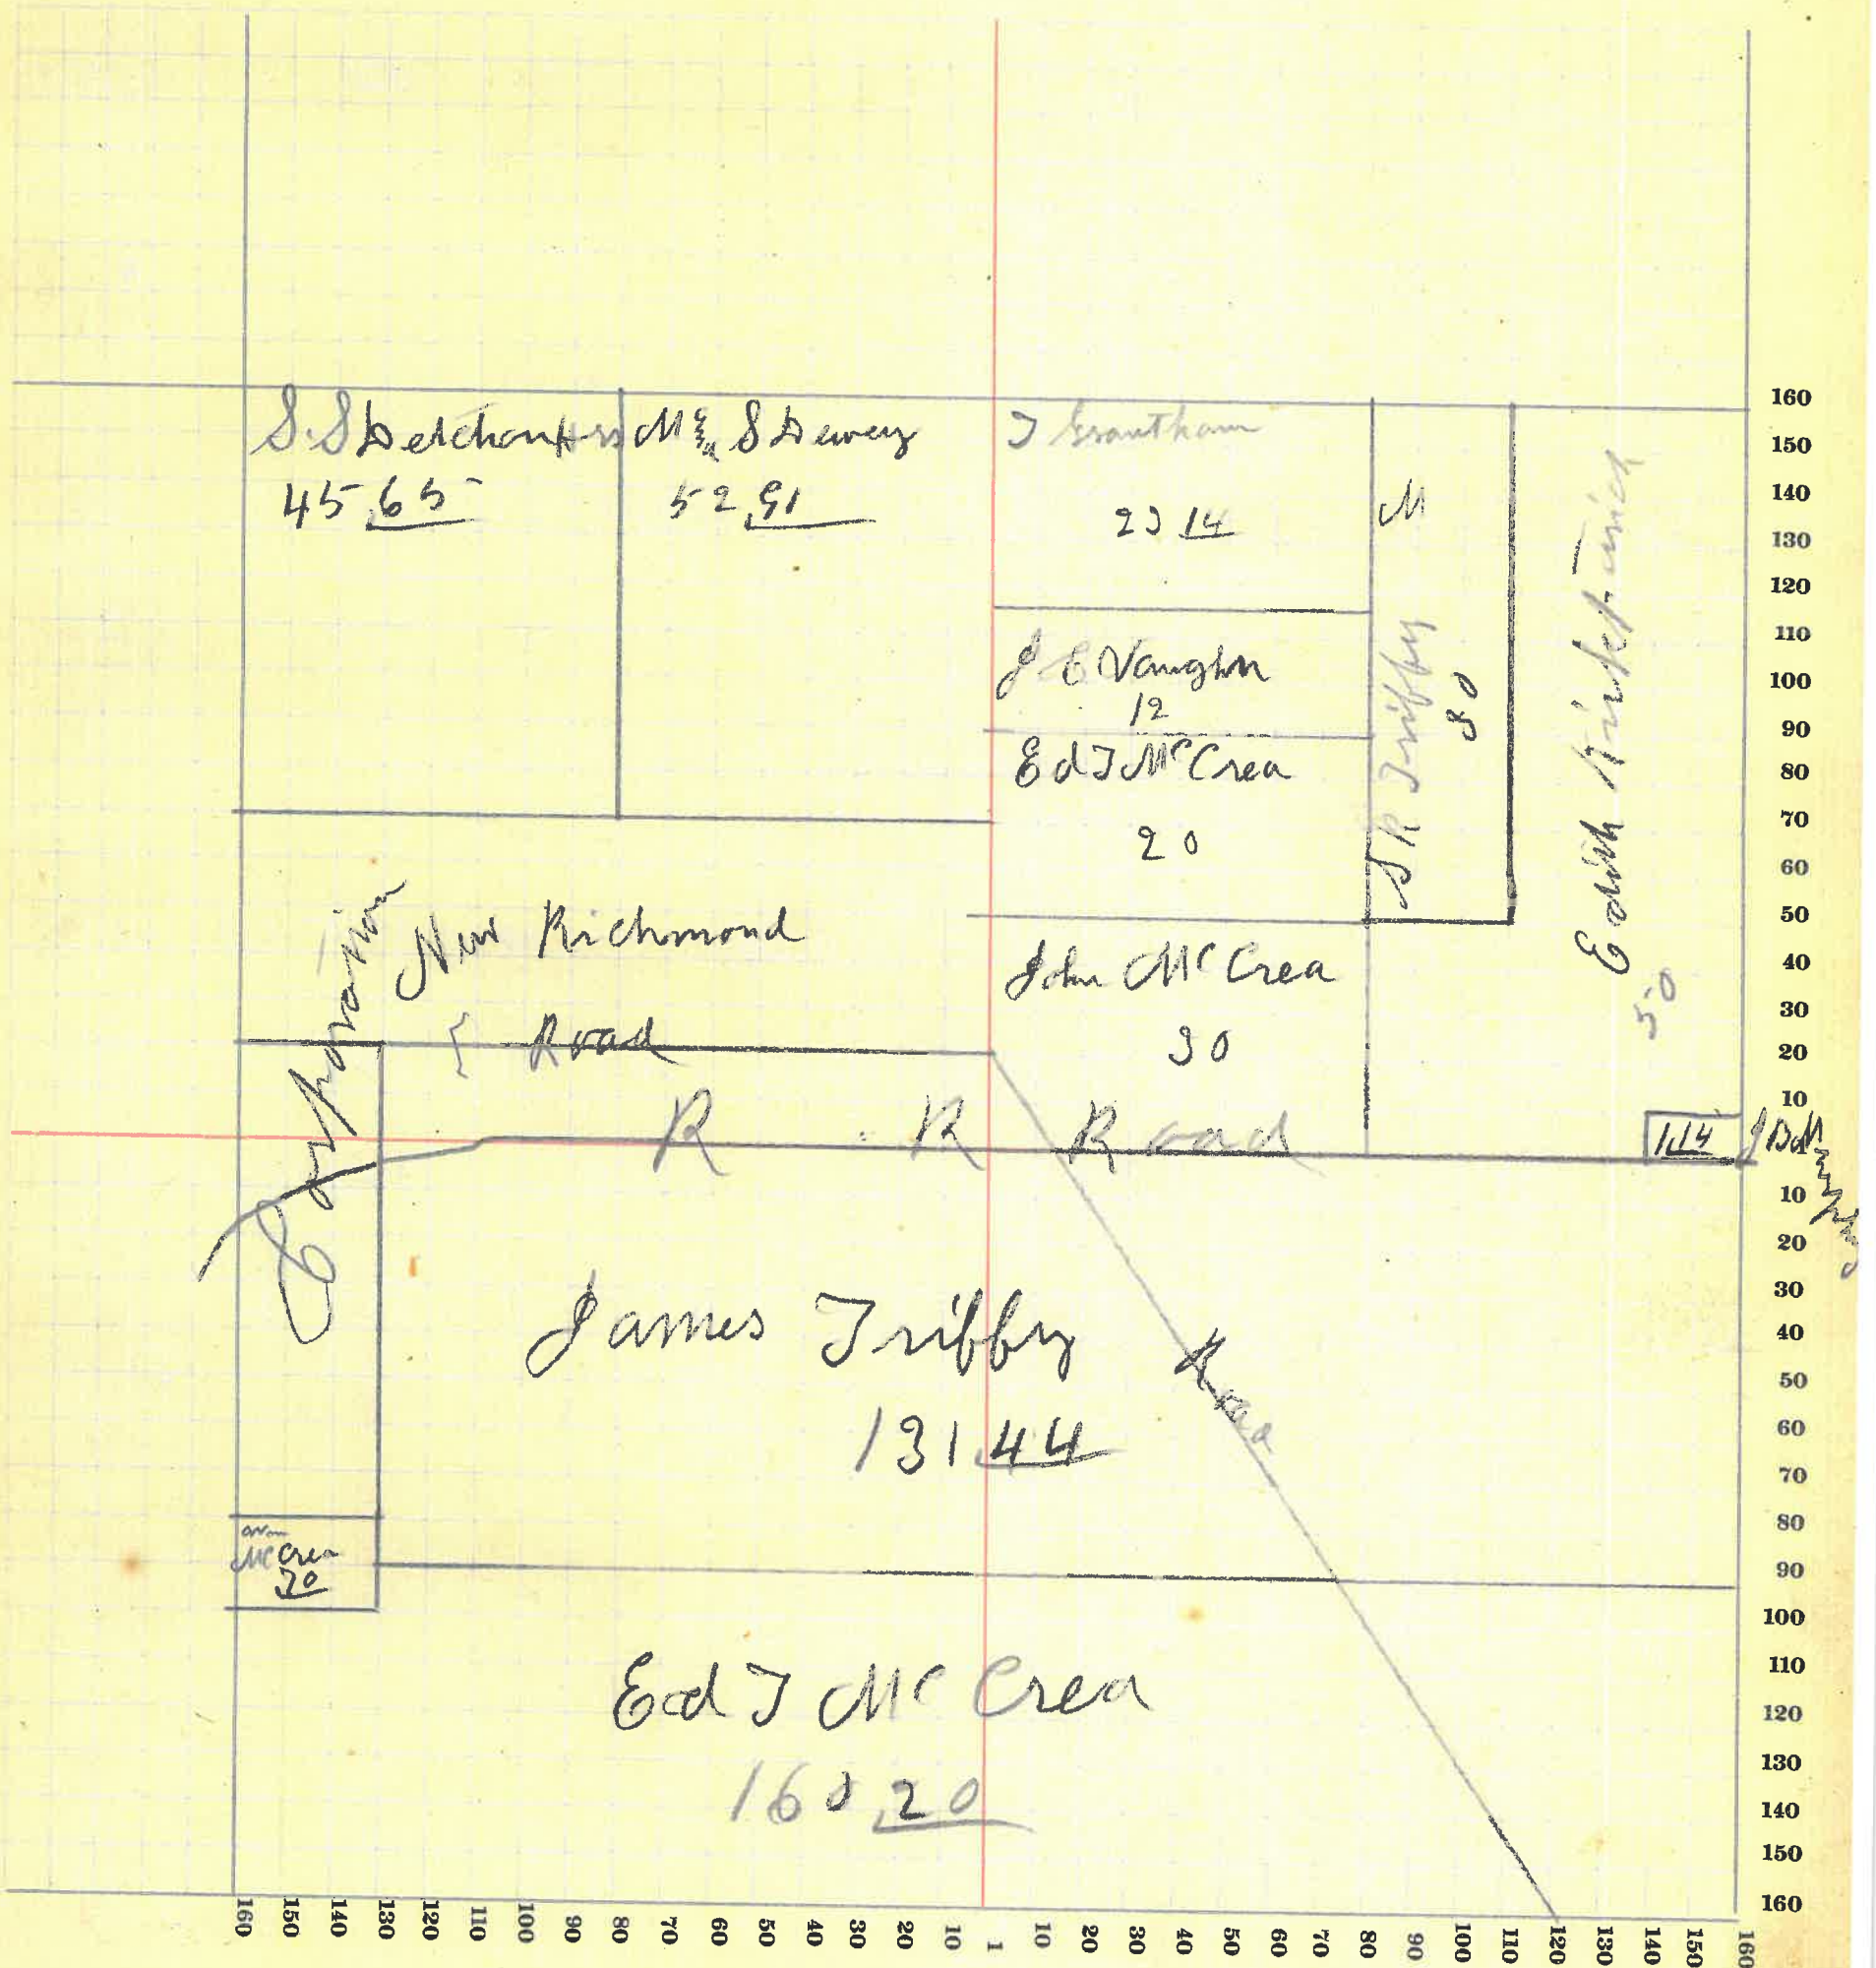 S. S.
45.65
Mrs S Dewey
52.91
T Grantham
23 14
J E Vaughn
12
Ed T McCrea
20
John McCrea
30
M
S R Tribby
30
Edith
50
New Richmond
Road
Corporation
R R Road
1.14
J B
James Tribby
131.44
Road
McCrea
Ed T McCrea
160.20
160
150
140
130
120
110
100
90
80
70
60
50
40
30
20
10
1
10
20
30
40
50
60
70
80
90
100
110
120
130
140
150
160
160 150 140 130 120 110 100 90 80 70 60 50 40 30 20 10 1 10 20 30 40 50 60 70 80 90 100 110 120 130 140 150 160